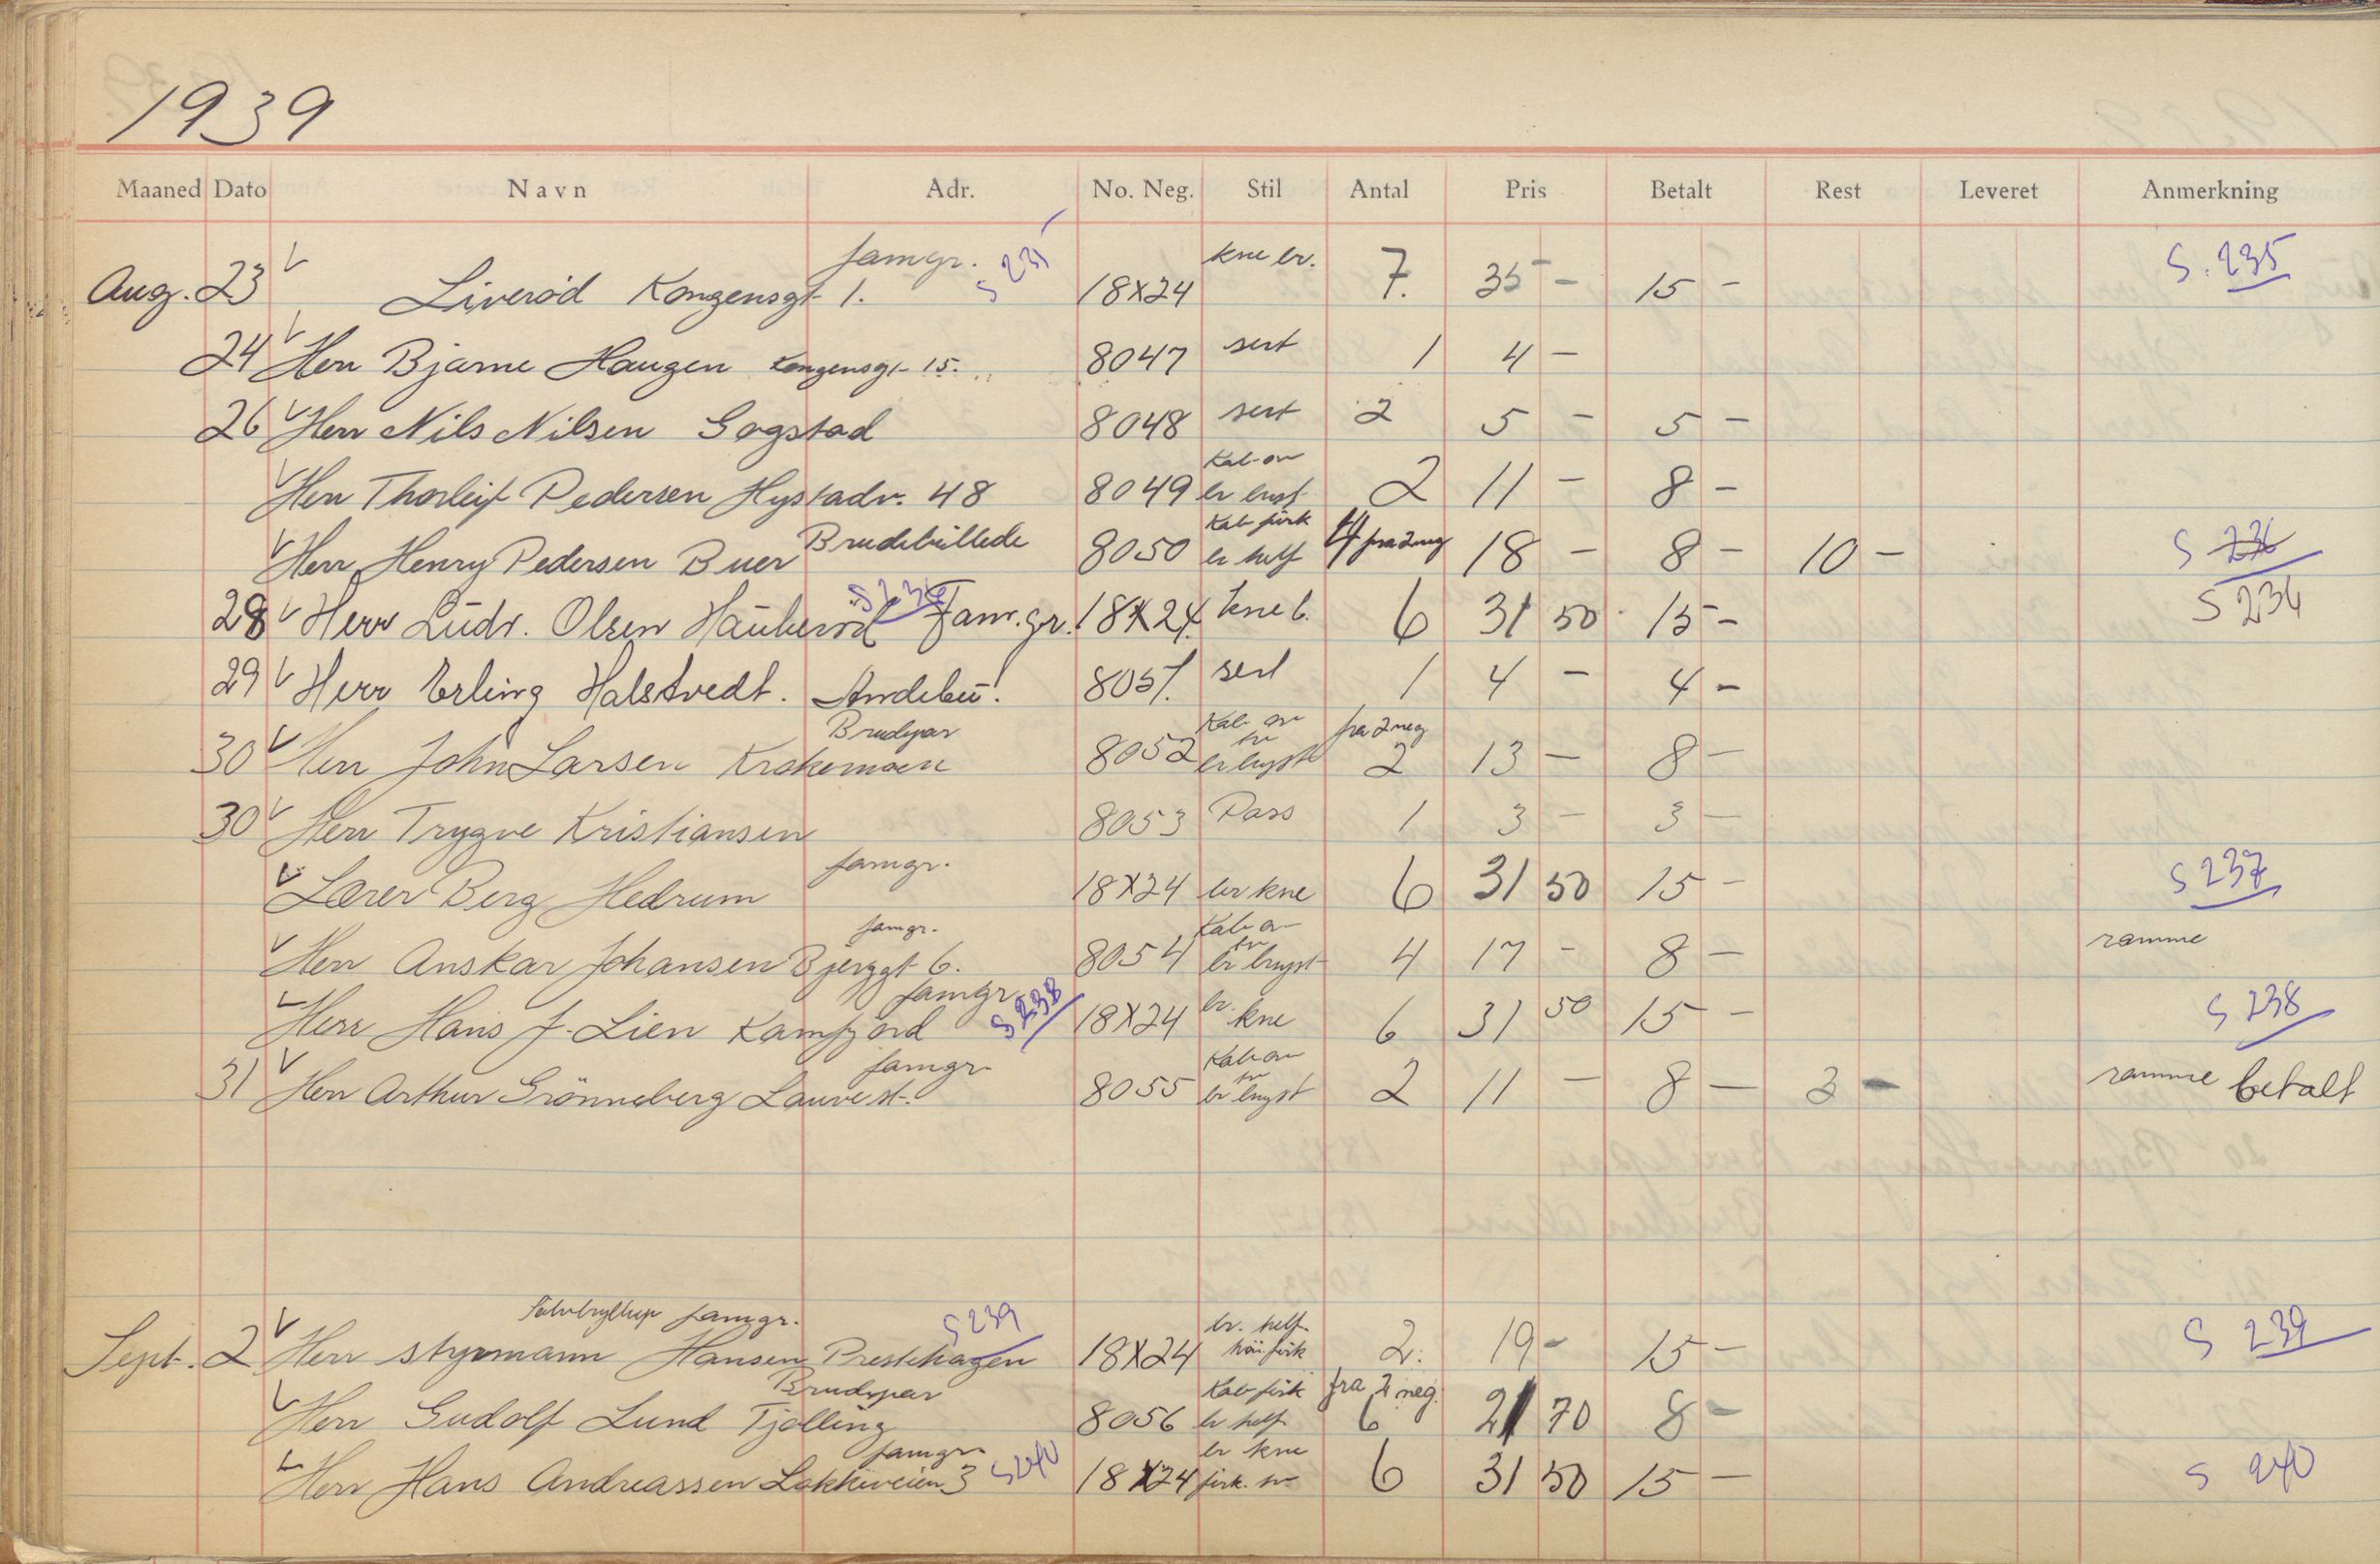 1939
Maaned Dato Navn Adr. No. Neg. Stil Antal Pris Betalt Rest Leveret Anmerkning
famgr. S 235 kne br. S. 235
Aug. 23 Liverød Kongensgt 1. 18X24 7. 35 - 15 -
24 Herr Bjarne Haugen Kongensgt 15. 8047 sert 1 4 -
26 Herr Nils Nilsen Gogstad 8048 sert 2 5 - 5 -
Kab. ov
Herr Thorleif Pedersen Hystadv. 48 8049 br bryst 2 11 - 8 -
Brudebillede Kab firk
Herr Henry Pedersen Buer 8050 br helf 4 fra 2 neg 18 - 8 - 10 - S 236
28 Herr Ludv. Olsen Hauberød S 236 Fam.gr. 18X24 kne b. 6 31 50 15 - S 236
29 Herr Erling Halstvedt. Andebu. 8051. sert 1 4 - 4 -
Brudepar Kab ov sv fra 2 neg
30 Herr John Larsen Krokemoen 8052 br bryst 2 13 - 8 -
30 Herr Trygve Kristiansen 8053 Pass 1 3 - 3 -
famgr.
Lærer Berg Hedrum 18X24 br kne 6 31 50 15 - S 237
famgr. Kab ov sv ramme
Herr Anskar Johansen Bjerggt 6. 8054 br bryst 4 17 - 8 -
famgr. S 238 br.
Herr Hans J. Lien Kamfjord 18X24 kne 6 31 50 15 - S 238
famgr. Kab ov sv
31 Herr Arthur Grönneberg Lauve st. 8055 br bryst 2 11 - 8 - 3 - ramme betalt
Sølvbryllup famgr. S 239 br. helf
Sept. 2 Herr styrmann Hansen Prestehagen 18X24 firk 2. 19 - 15 - S 239
Brudepar Kab firk fra 2 neg.
Herr Gudolf Lund Tjølling 8056 br helf 6 21 70 8 -
famgr. S 240 br kne
Herr Hans Andreassen 3 18X24 firk. sv. 6 31 50 15 - S 240